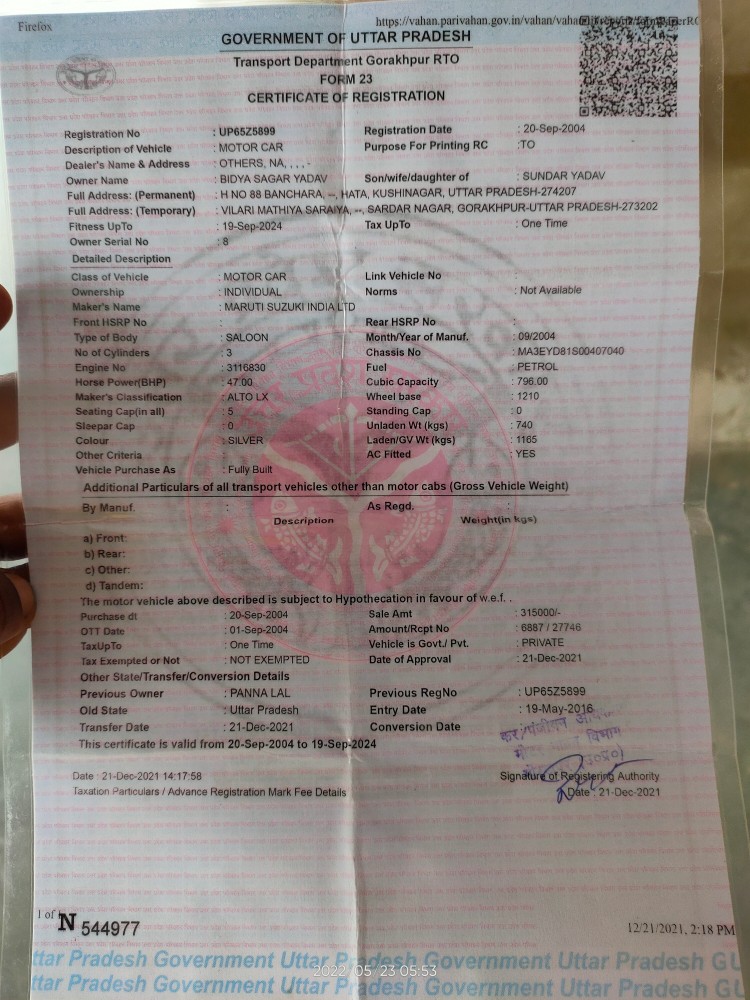 Firefox https://vahan.parivahan.gov.in/vahan/
GOVERNMENT OF UTTAR PRADESH
Transport Department Gorakhpur RTO
FORM 23
CERTIFICATE OF REGISTRATION
Registration No : UP65Z5899 Registration Date : 20-Sep-2004
Description of Vehicle : MOTOR CAR Purpose For Printing RC :TO
Dealer's Name & Address : OTHERS, NA, , , , -
Owner Name : BIDYA SAGAR YADAV Son/wife/daughter of : SUNDAR YADAV
Full Address: (Permanent) : H NO 88 BANCHARA, --, HATA, KUSHINAGAR, UTTAR PRADESH-274207
Full Address: (Temporary) : VILARI MATHIYA SARAIYA, --, SARDAR NAGAR, GORAKHPUR-UTTAR PRADESH-273202
Fitness UpTo : 19-Sep-2024 Tax UpTo : One Time
Owner Serial No : 8
Detailed Description
Class of Vehicle : MOTOR CAR Link Vehicle No :
Ownership : INDIVIDUAL Norms : Not Available
Maker's Name : MARUTI SUZUKI INDIA LTD
Front HSRP No : Rear HSRP No :
Type of Body : SALOON Month/Year of Manuf. : 09/2004
No of Cylinders : 3 Chassis No : MA3EYD81S00407040
Engine No : 3116830 Fuel : PETROL
Horse Power(BHP) : 47.00 Cubic Capacity : 796.00
Maker's Classification : ALTO LX Wheel base : 1210
Seating Cap(in all) : 5 Standing Cap : 0
Sleepar Cap : 0 Unladen Wt (kgs) : 740
Colour : SILVER Laden/GV Wt (kgs) : 1165
Other Criteria : AC Fitted : YES
Vehicle Purchase As : Fully Built
Additional Particulars of all transport vehicles other than motor cabs (Gross Vehicle Weight)
By Manuf. : As Regd. :
Description Weight(in kgs)
a) Front:
b) Rear:
c) Other:
d) Tandem:
The motor vehicle above described is subject to Hypothecation in favour of w.e.f. .
Purchase dt : 20-Sep-2004 Sale Amt : 315000/-
OTT Date : 01-Sep-2004 Amount/Rcpt No : 6887 / 27746
TaxUpTo : One Time Vehicle is Govt./ Pvt. : PRIVATE
Tax Exempted or Not : NOT EXEMPTED Date of Approval : 21-Dec-2021
Other State/Transfer/Conversion Details
Previous Owner : PANNA LAL Previous RegNo : UP65Z5899
Old State : Uttar Pradesh Entry Date : 19-May-2016
Transfer Date : 21-Dec-2021 Conversion Date
This certificate is valid from 20-Sep-2004 to 19-Sep-2024
Date : 21-Dec-2021 14:17:58 Signature of Registering Authority
Taxation Particulars / Advance Registration Mark Fee Details Date : 21-Dec-2021
1 of N 544977 12/21/2021, 2:18 PM
ttar Pradesh Government Uttar Pradesh Government Uttar Pradesh GU
ttar Pradesh Government Uttar Pradesh Government Uttar Pradesh GU
2022/05/23 05:53